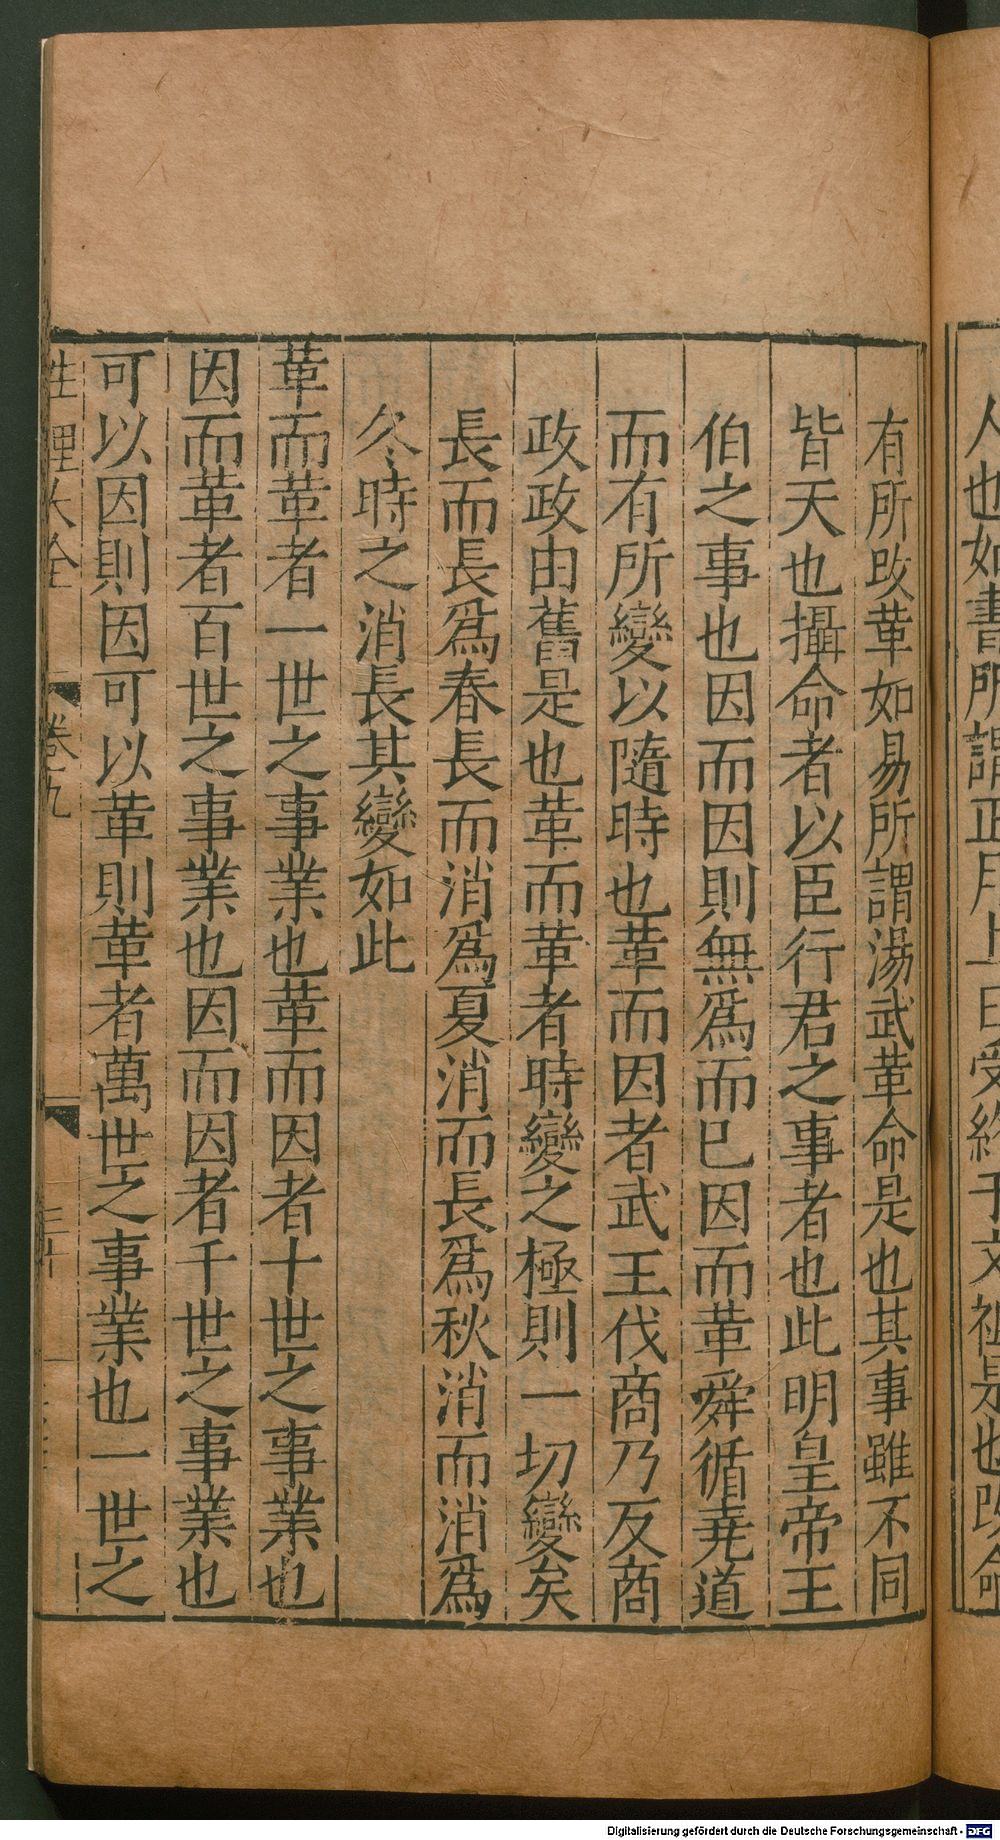 人也如書所謂正月上日受終于文祖是也改命
有所改革如易所謂湯武革命是也其事雖不同
皆天也攝命者以臣行君之事者也此明皇帝王
伯之事也因而因則無爲而已因而革舜循堯道
而有所變以隨時也革而因者武王伐商乃反商
政政由舊是也革而革者時變之極則一切變矣
長而長爲春長而消爲夏消而長爲秋消而消爲
冬時之消長其變如此
革而革者一世之事業也革而因者十世之事業也
因而革者百世之事業也因而因者千世之事業也
可以因則因可以革則革者萬世之事業也一世之
性理大全 卷九 三十
Digitalisierung gefördert durch die Deutsche Forschungsgemeinschaft - DFG